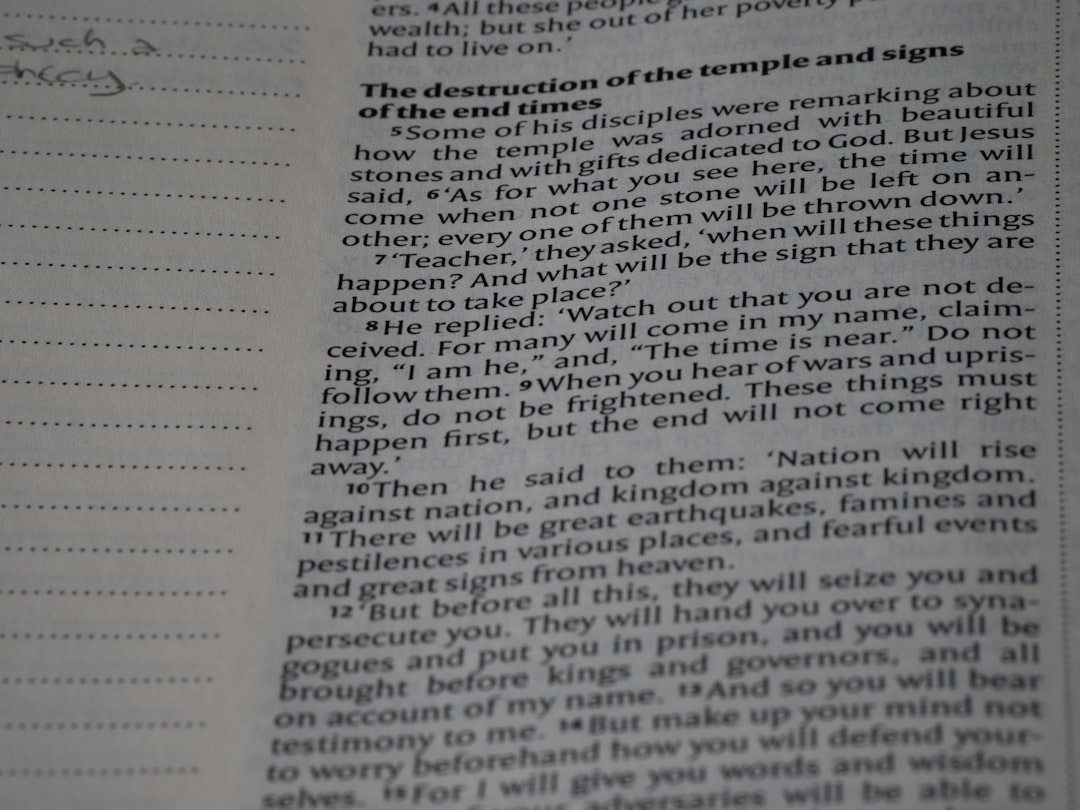 such a
ers. 4All these people
wealth; but she out of her poverty
had to live on.’
The destruction of the temple and signs
of the end times
5Some of his disciples were remarking about
how the temple was adorned with beautiful
stones and with gifts dedicated to God. But Jesus
said, 6‘As for what you see here, the time will
come when not one stone will be left on an-
other; every one of them will be thrown down.’
7‘Teacher,’ they asked, ‘when will these things
happen? And what will be the sign that they are
about to take place?’
8He replied: ‘Watch out that you are not de-
ceived. For many will come in my name, claim-
ing, “I am he,” and, “The time is near.” Do not
follow them. 9When you hear of wars and upris-
ings, do not be frightened. These things must
happen first, but the end will not come right
away.’
10Then he said to them: ‘Nation will rise
against nation, and kingdom against kingdom.
11There will be great earthquakes, famines and
pestilences in various places, and fearful events
and great signs from heaven.
12‘But before all this, they will seize you and
persecute you. They will hand you over to syna-
gogues and put you in prison, and you will be
brought before kings and governors, and all
on account of my name. 13And so you will bear
testimony to me. 14But make up your mind not
to worry beforehand how you will defend your-
selves. 15For I will give you words and wisdom
adversaries will be able to